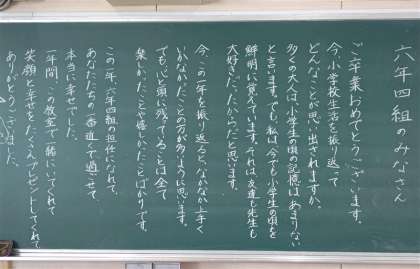 六年四組のみなさん
ご卒業おめでとうございます。
今、小学校生活を振り返って
どんなことが思い出されますか。
多くの大人は、小学生の頃の記憶はあまりない
と言います。でも、私は今でも小学生の頃を
鮮明に覚えています。それは、友達も先生も
大好きだったからだと思います。
今、この一年を振り返ると、なかなか上手く
いかなかったことの方が多いように思います。
でも、心と頭に残っていることは全て
楽しかったことや嬉しかったことばかりです。
この一年、六年四組の担任になれて、
あなたたちの一番近くで過ごせて、
本当に幸せでした。
一年間、この教室で一緒にいてくれて
笑顔と幸せをたくさんプレゼントしてくれて
ありがとうございました。